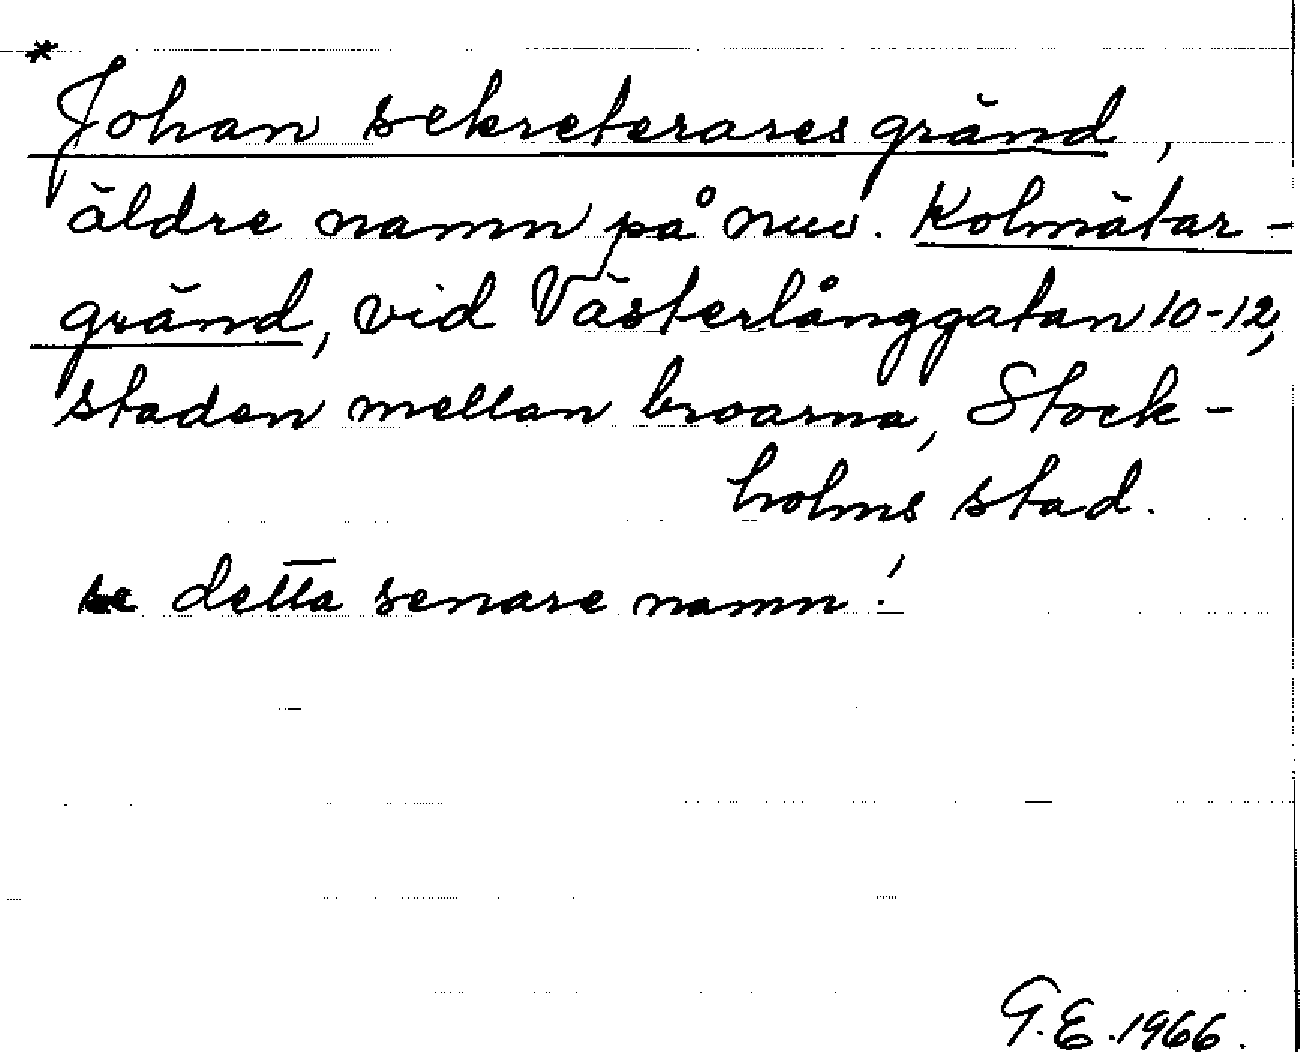 * Johan sekreterares gränd,
äldre namn på nuv. Kolmätar-
gränd, vid Västerlånggatan 10-12,
staden mellan broarna, Stock-
holms stad.
se detta senare namn!
G.E. 1966.